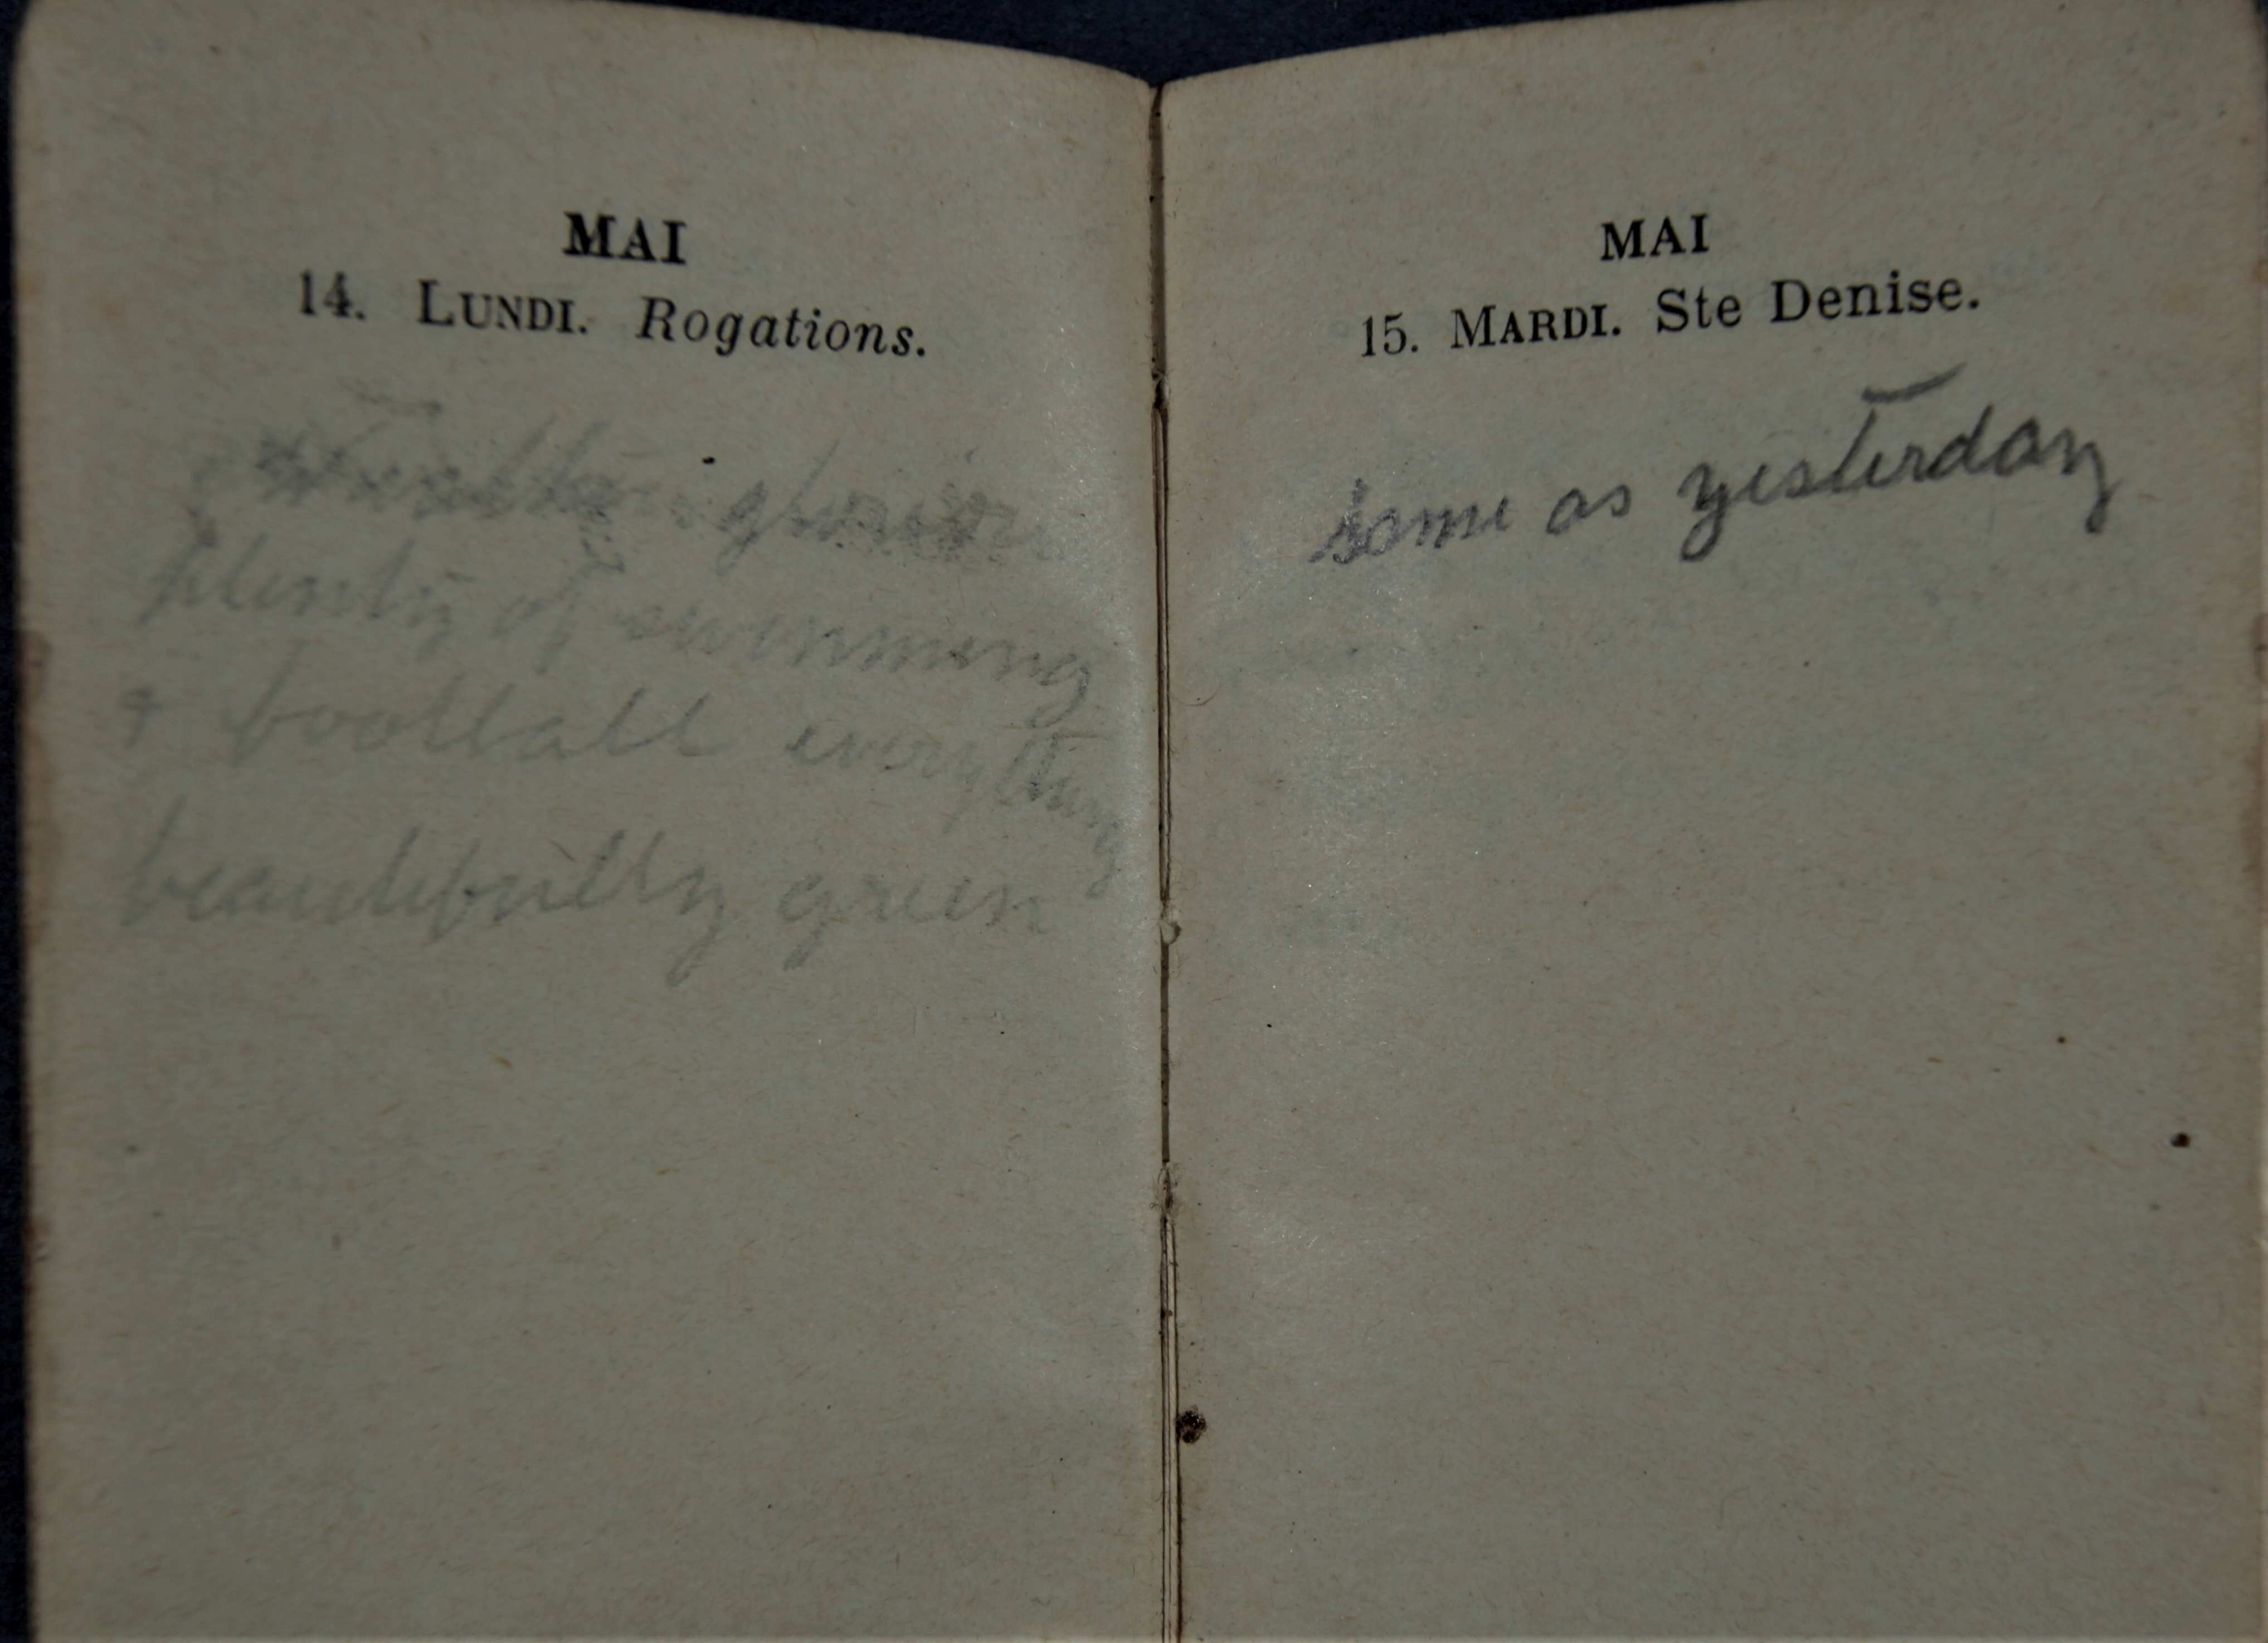 MAI
14. LUNDI. Rogations.
weather glorious
plenty of swimming
+ football everything
beautifully green
MAI
15. MARDI. Ste Denise.
same as yesterday